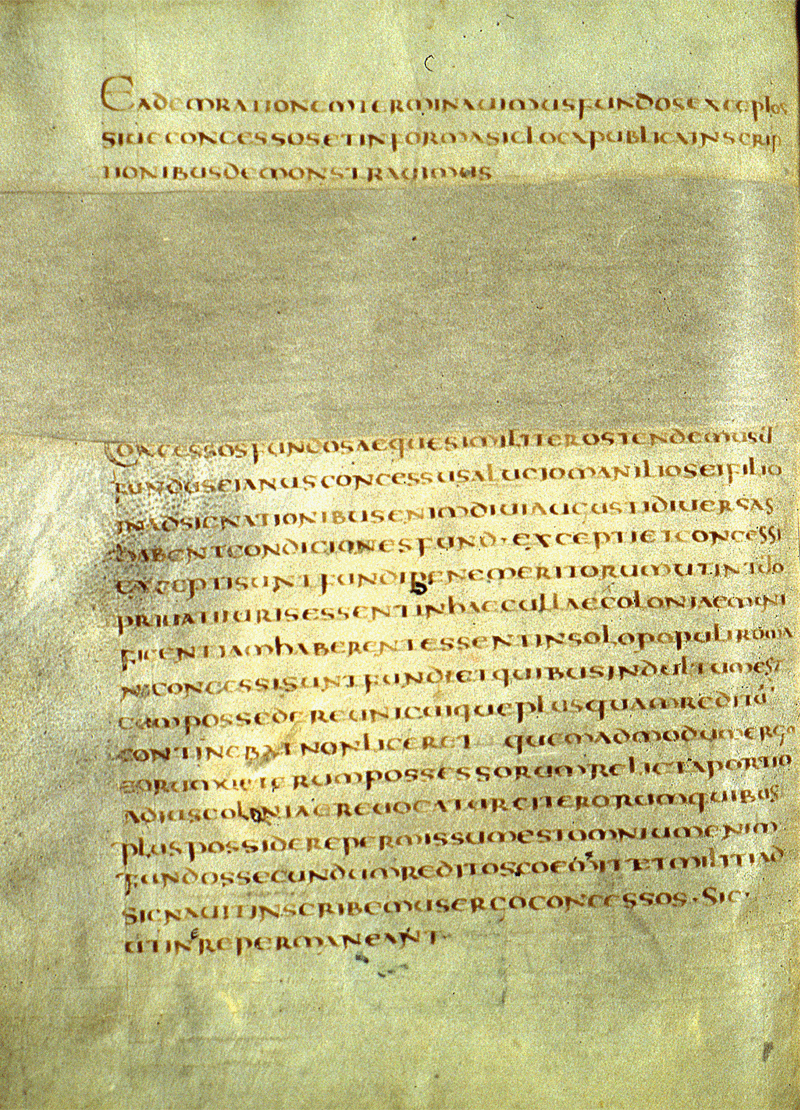 Eadem rationem terminauimus fundos exceptos
siue concessos et in formas ic loca publica inscrip
tionibus demonstrauimus
Concessos fundos aeque similiter ostendemus
fundus seianus concessus a lucio manilio sei filio
in adsignationibus enim diui augusti diuersas
habent condiciones fund· excepti et concessi
excepti sunt fundi bene meritorum ut in toto
priuati iuris essent in haec cullae coloniae muni
ficentiam haberent essent in solo populi roma
ni concessi sunt fundi et quibus indultum est
cum possedere unicuique plus quam
continebat non liceret quemadmodum ergo
eorum ueterum possessorum relicta portio
ad ius coloniae reuocatur eiterorum quibus
plus possidere permissum est omnium enim
fundos secundum reditos coemit et militi ad
signauit inscribemus ergo concessos· sic·
ut in ere permaneant